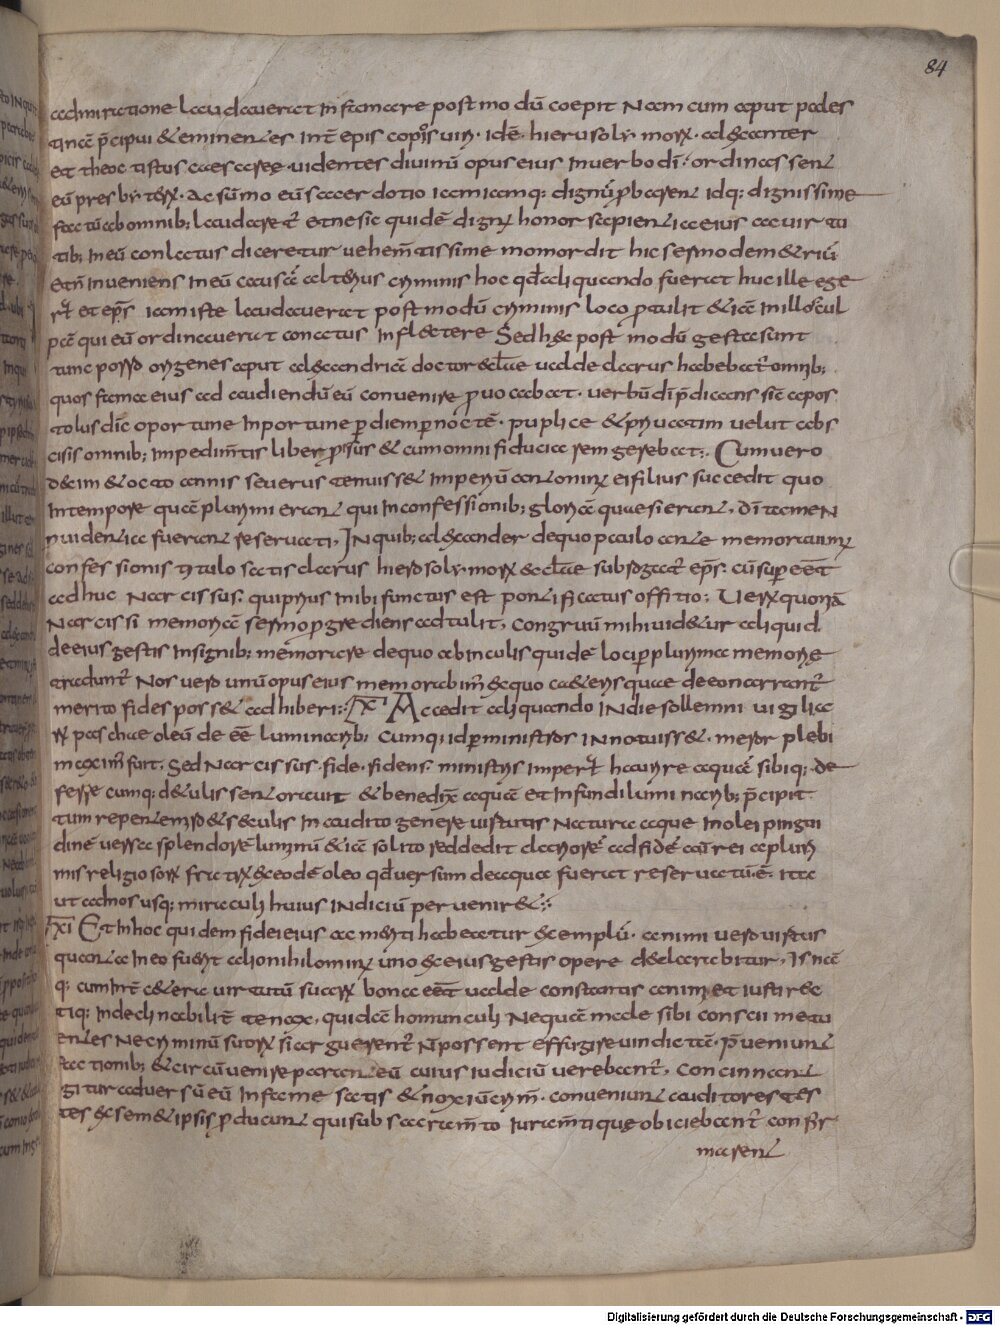 84
admiratione laudauerat infamare post modū coepit Nam cum aput pales
tinā p̄cipui & eminentes int̄ epīs copi̊s uiri · idē · hierusolỳmoꝝ · alexanter
et theoc tistus caesaree · uidentes diuinū opus eius in uerbo dī · ordinassent
eū presbyteꝝ · ac sūmo eū sacerdotio iam iamq; dignū p̱barent idq; dignissime
factū ab omnib; laudaret̄ et ne sic quidē dignꝰ honor sapientia eius ac uirtu
tib; in eū conlectus diceretur uehem̄tissime momordit hic sermo demetriū
et n̄ inueniens in eū causā alterius criminis hoc qd̄ aliquando fuerat huic ille ege
rat et ep̄s iam iste laudauerat post modū criminis loco p̱tulit & iā in illoꝝ cul
pā qui eū ordinauerat conatus inflectere Sed hęc post modū gesta sunt
tunc porro origenes aput alexandriā doctor eccl̄ae ualde clarus habebat̄ omnib;
quos fama eius ad audiendū eū conuenire p̱uocabat · uerbū dī p̄dicans sic̄ apos
tolus dīc oportune inportune ꝑ diem ꝑ noctē · puplice & priuatim uelut abs
cisis omnib; impedim̄tis liber p̱sus & cum omni fiducia rem gerebat:· Cum uero
decim & octo annis seuerus tenuisset imperiū antoninꝰ ei filius succedit quo
in tempore quā plurimi erant qui in confessionib; gloriā quaesierant, dī tamen
puidentia fuerant reseruati, In quib; alexander de quo paulo ante memorauimꝰ
confessionis titulo satis clarus hierosolỳmoꝝ eccl̄ae subrogat̄ ep̄s · cū sup eēt
adhuc Narcissus · qui prius inibi functus est pontificatus offitio; Ueꝝ quonā
Narcissi memoriā sermo p̱grediens adtulit, congruū mihi uidetur aliquid
de eius gestis insignib; memorare de quo ab inculis quidē loci ꝑplurima memorię
tradunt̄ Nos uero unū opus eius memorabim̄ ex quo ceteris quae de eo narrant̄
merito fides posset adhiberi:· X Accedit aliquando in die sollemni uigilia
ꝝ paschae oleū deeē luminarib; cumq; id ꝑ ministros innotuisset · meror plebi
maxim̄ fuit, Sed Narcissus · fide · fidens · ministris imperat haurire aquā sibiq; de
ferre cumq; detulissent orauit & benedix̄ aquā et infundi luminarib; p̄cipit
tum repente miro & seculis inaudito genere uirtutis Natura aque in olei pingui
dinē uersa splendorē luminū etiā solito reddedit clariorē ad fidē aūt rei aplurꝰ
mis religiosoꝝ fratrꝝ ex eodē oleo qd̄ uersum de aqua fuerat reseruatū · ē · ita
ut ad nos usq; miraculi huius indiciū perueniret:·
XI Et in hoc quidem fidei eius ac m̄ti habeatur exemplū · animi uero uirtus
quanta in eo fuerit alio nihilominꝰ uno ex eius gestis opere declarabitur, Is nā
q; cum int̄ cetera uirtutū suaꝝ bona eēt ualde constantis animi et iusti rec
tiq; indeclinabilit̄ tenax, quidā homunculi Nequā male sibi conscii metu
entes Ne criminū suoꝝ si arguerent̄ n̄ possent effugire uindictā · p̄ueniunt
factionib; & circūuenire parant eū cuius iudiciū uerebant̄, concinnant
gitur aduersū eū infame satis & noxiū crim̄ · conueniunt auditores tes
tes ex semetipsis p̱ducunt qui sub sacram̄to iuram̄tique obiciebant̄ confir
marent
Digitalisierung gefördert durch die Deutsche Forschungsgemeinschaft - DFG